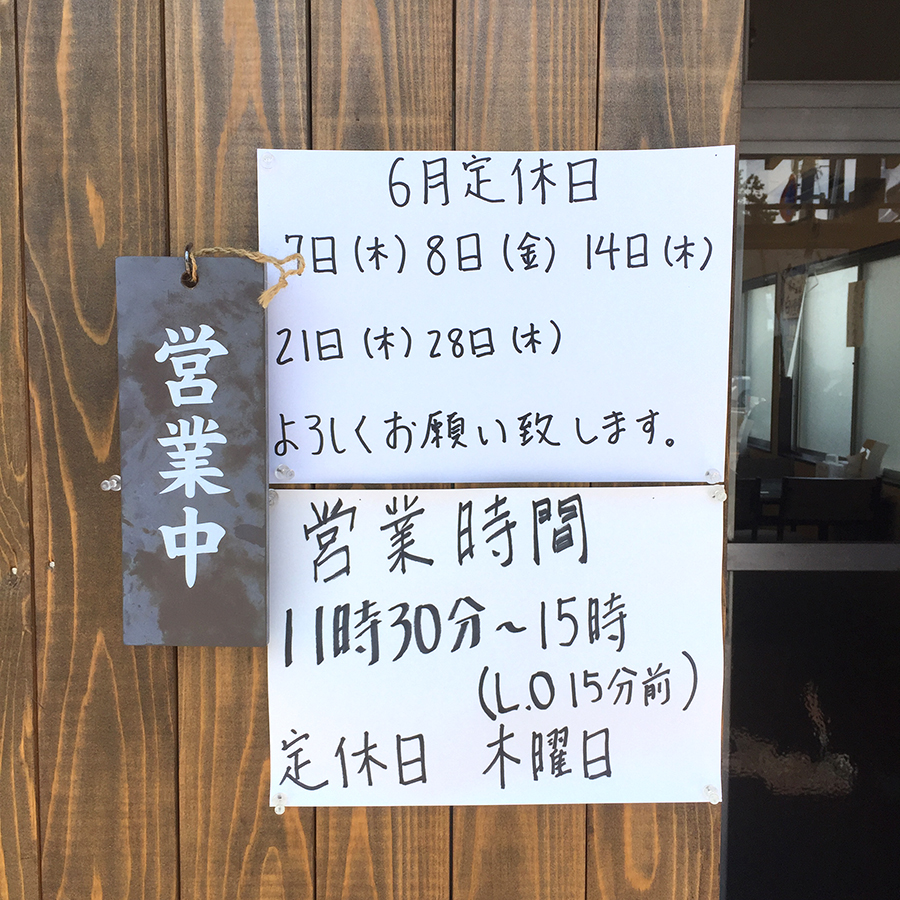 営業中
6月定休日
7日(木) 8日(金) 14日(木)
21日(木) 28日(木)
よろしくお願い致します。
営業時間
11時30分~15時
(L.O 15分前)
定休日 木曜日